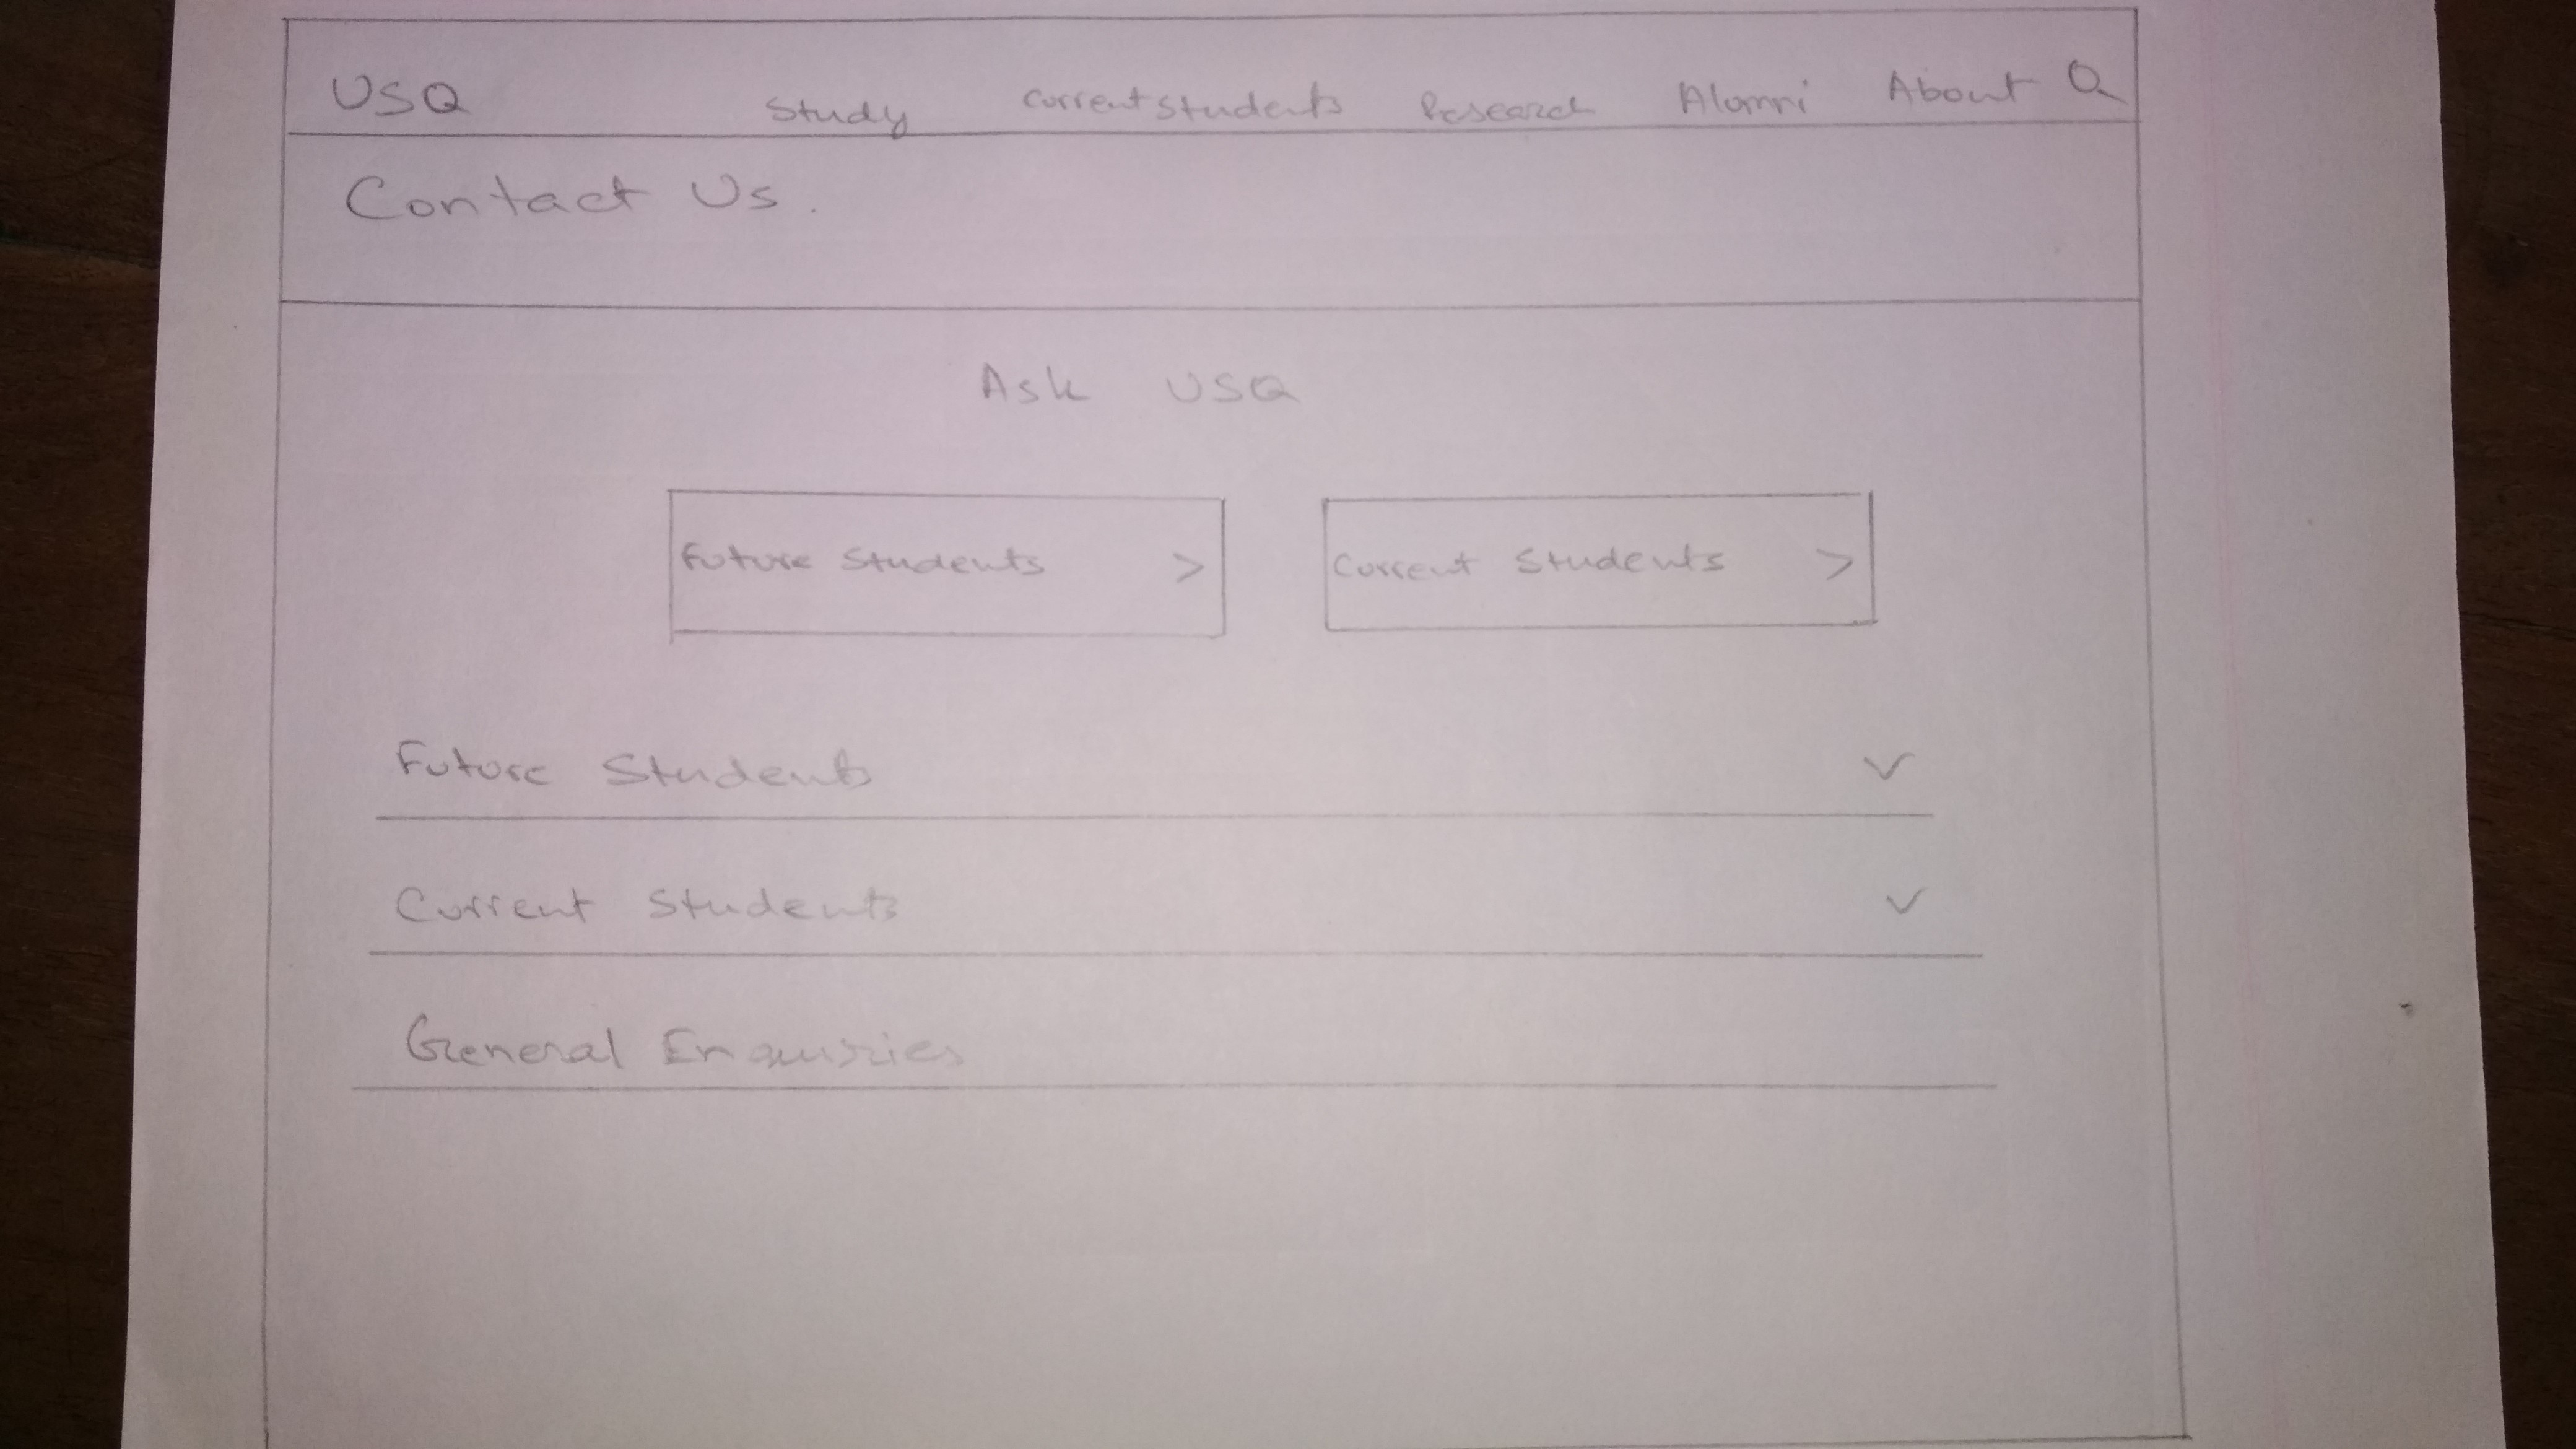 USQ Study Current Students Research Alumni About
Contact Us.
Ask USQ
Future Students > Current Students >
Future Students
Current Students
General Enquiries